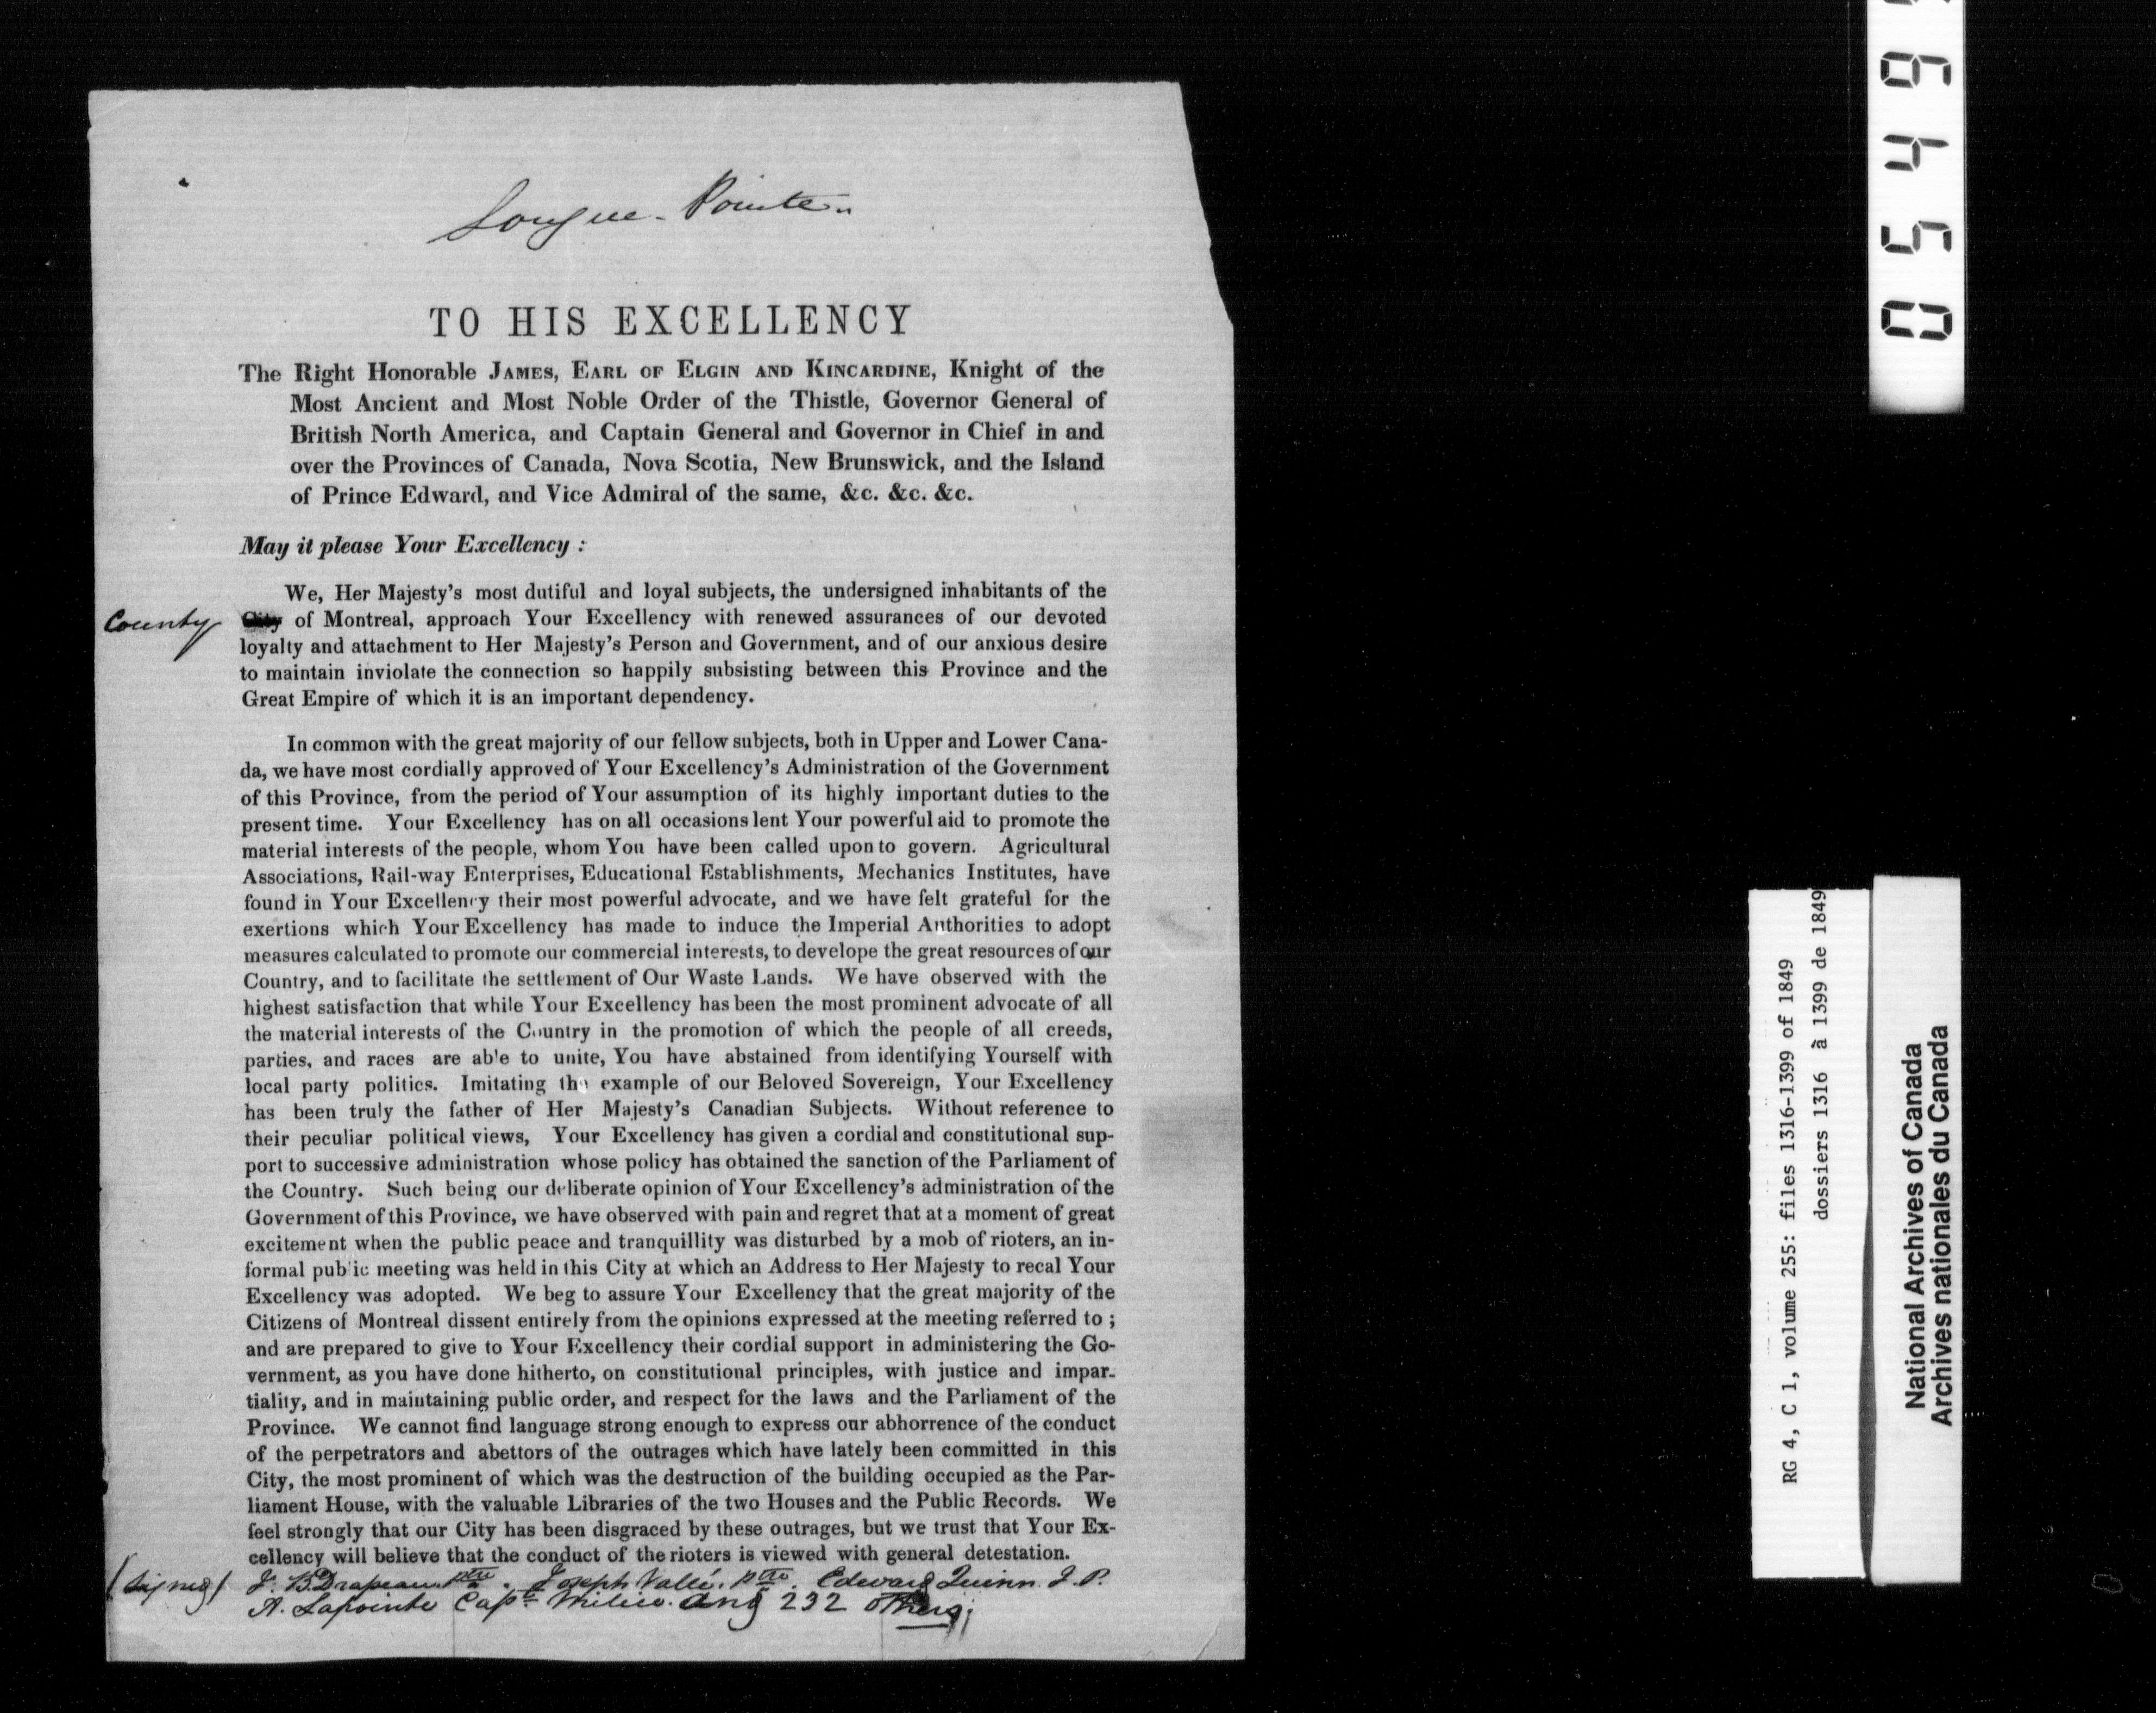 Longue-Pointe
TO HIS EXCELLENCY
The Right Honorable JAMES, EARL OF ELGIN AND KINCARDINE, Knight of the
Most Ancient and Most Noble Order of the Thistle, Governor General of
British North America, and Captain General and Governor in Chief in and
over the Provinces of Canada, Nova Scotia, New Brunswick, and the Island
of Prince Edward, and Vice Admiral of the same, &c. &c. &c.
May it please Your Excellency :
We, Her Majesty's most dutiful and loyal subjects, the undersigned inhabitants of the
County City of Montreal, approach Your Excellency with renewed assurances of our devoted
loyalty and attachment to Her Majesty's Person and Government, and of our anxious desire
to maintain inviolate the connection so happily subsisting between this Province and the
Great Empire of which it is an important dependency.
In common with the great majority of our fellow subjects, both in Upper and Lower Cana-
da, we have most cordially approved of Your Excellency's Administration of the Government
of this Province, from the period of Your assumption of its highly important duties to the
present time. Your Excellency has on all occasions lent Your powerful aid to promote the
material interests of the people, whom You have been called upon to govern. Agricultural
Associations, Rail-way Enterprises, Educational Establishments, Mechanics Institutes, have
found in Your Excellency their most powerful advocate, and we have felt grateful for the
exertions which Your Excellency has made to induce the Imperial Authorities to adopt
measures calculated to promote our commercial interests, to develope the great resources of our
Country, and to facilitate the settlement of Our Waste Lands. We have observed with the
highest satisfaction that while Your Excellency has been the most prominent advocate of all
the material interests of the Country in the promotion of which the people of all creeds,
parties, and races are able to unite, You have abstained from identifying Yourself with
local party politics. Imitating the example of our Beloved Sovereign, Your Excellency
has been truly the father of Her Majesty's Canadian Subjects. Without reference to
their peculiar political views, Your Excellency has given a cordial and constitutional sup-
port to successive administration whose policy has obtained the sanction of the Parliament of
the Country. Such being our deliberate opinion of Your Excellency's administration of the
Government of this Province, we have observed with pain and regret that at a moment of great
excitement when the public peace and tranquillity was disturbed by a mob of rioters, an in-
formal public meeting was held in this City at which an Address to Her Majesty to recal Your
Excellency was adopted. We beg to assure Your Excellency that the great majority of the
Citizens of Montreal dissent entirely from the opinions expressed at the meeting referred to ;
and are prepared to give to Your Excellency their cordial support in administering the Go-
vernment, as you have done hitherto, on constitutional principles, with justice and impar-
tiality, and in maintaining public order, and respect for the laws and the Parliament of the
Province. We cannot find language strong enough to express our abhorrence of the conduct
of the perpetrators and abettors of the outrages which have lately been committed in this
City, the most prominent of which was the destruction of the building occupied as the Par-
liament House, with the valuable Libraries of the two Houses and the Public Records. We
feel strongly that our City has been disgraced by these outrages, but we trust that Your Ex-
cellency will believe that the conduct of the rioters is viewed with general detestation.
(Signed) J. B. Drapeau ptre. Joseph Vallé. ptre. Edward Quinn. J. P.
A. Lapointe Capt. Milice. And 232 others;
RG 4, C 1, volume 255: files 1316-1399 of 1849
dossiers 1316 à 1399 de 1849
National Archives of Canada
Archives nationales du Canada